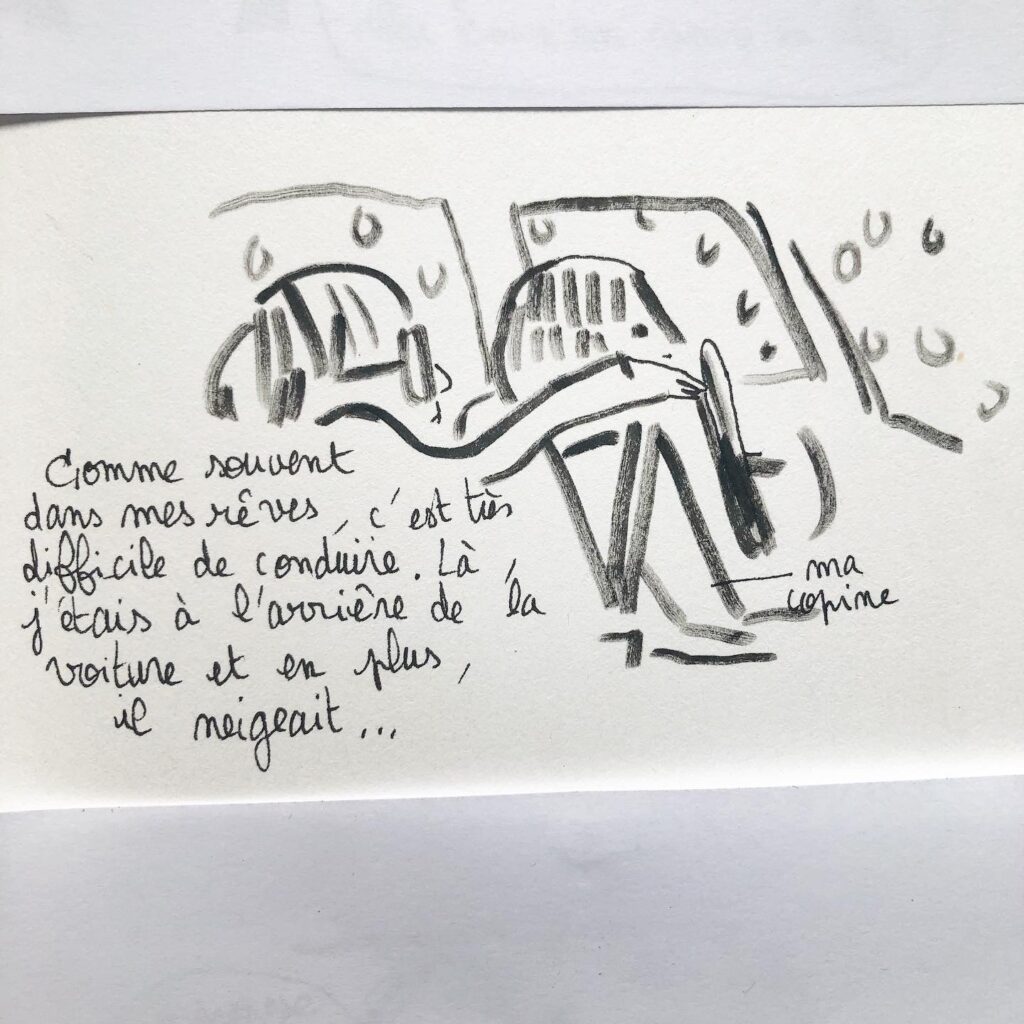 Comme souvent
dans mes rêves, c'est très
difficile de conduire. Là,
j'étais à l'arrière de la
voiture et en plus,
il neigeait...
ma
copine